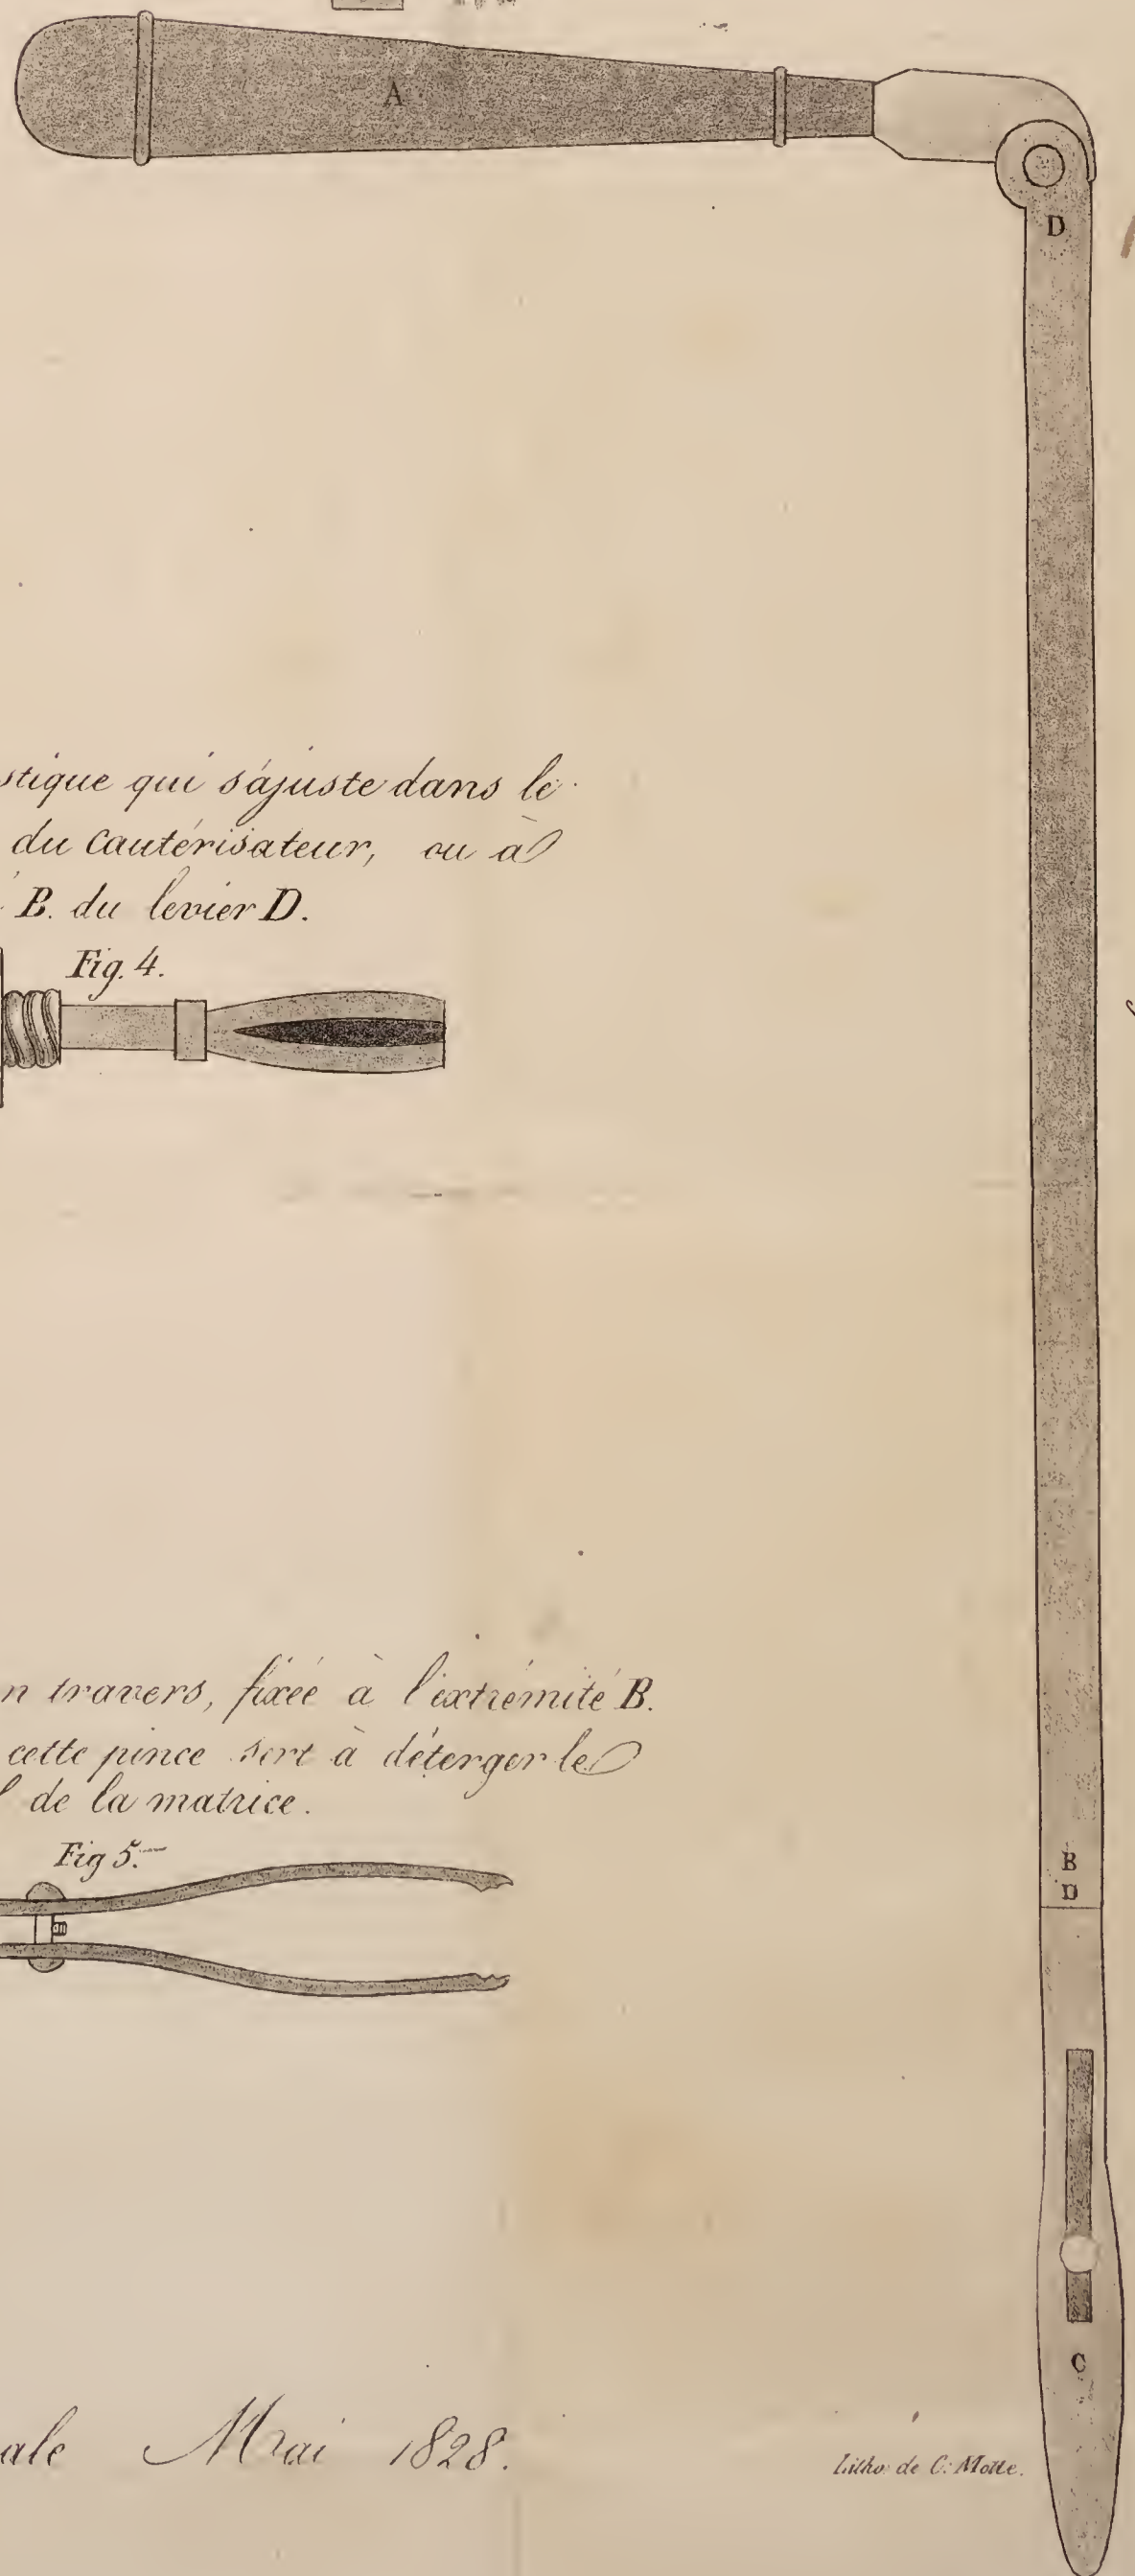 A
D
stique qui s'ajuste dans le
du cautérisateur, ou à
B. du levier D.
Fig. 4.
n travers, fixée à l'extrémité B.
cette pince sert à déterger le
l de la matrice.
Fig 5.
B
D
C
ale Mai 1828.
Litho: de C: Motte.